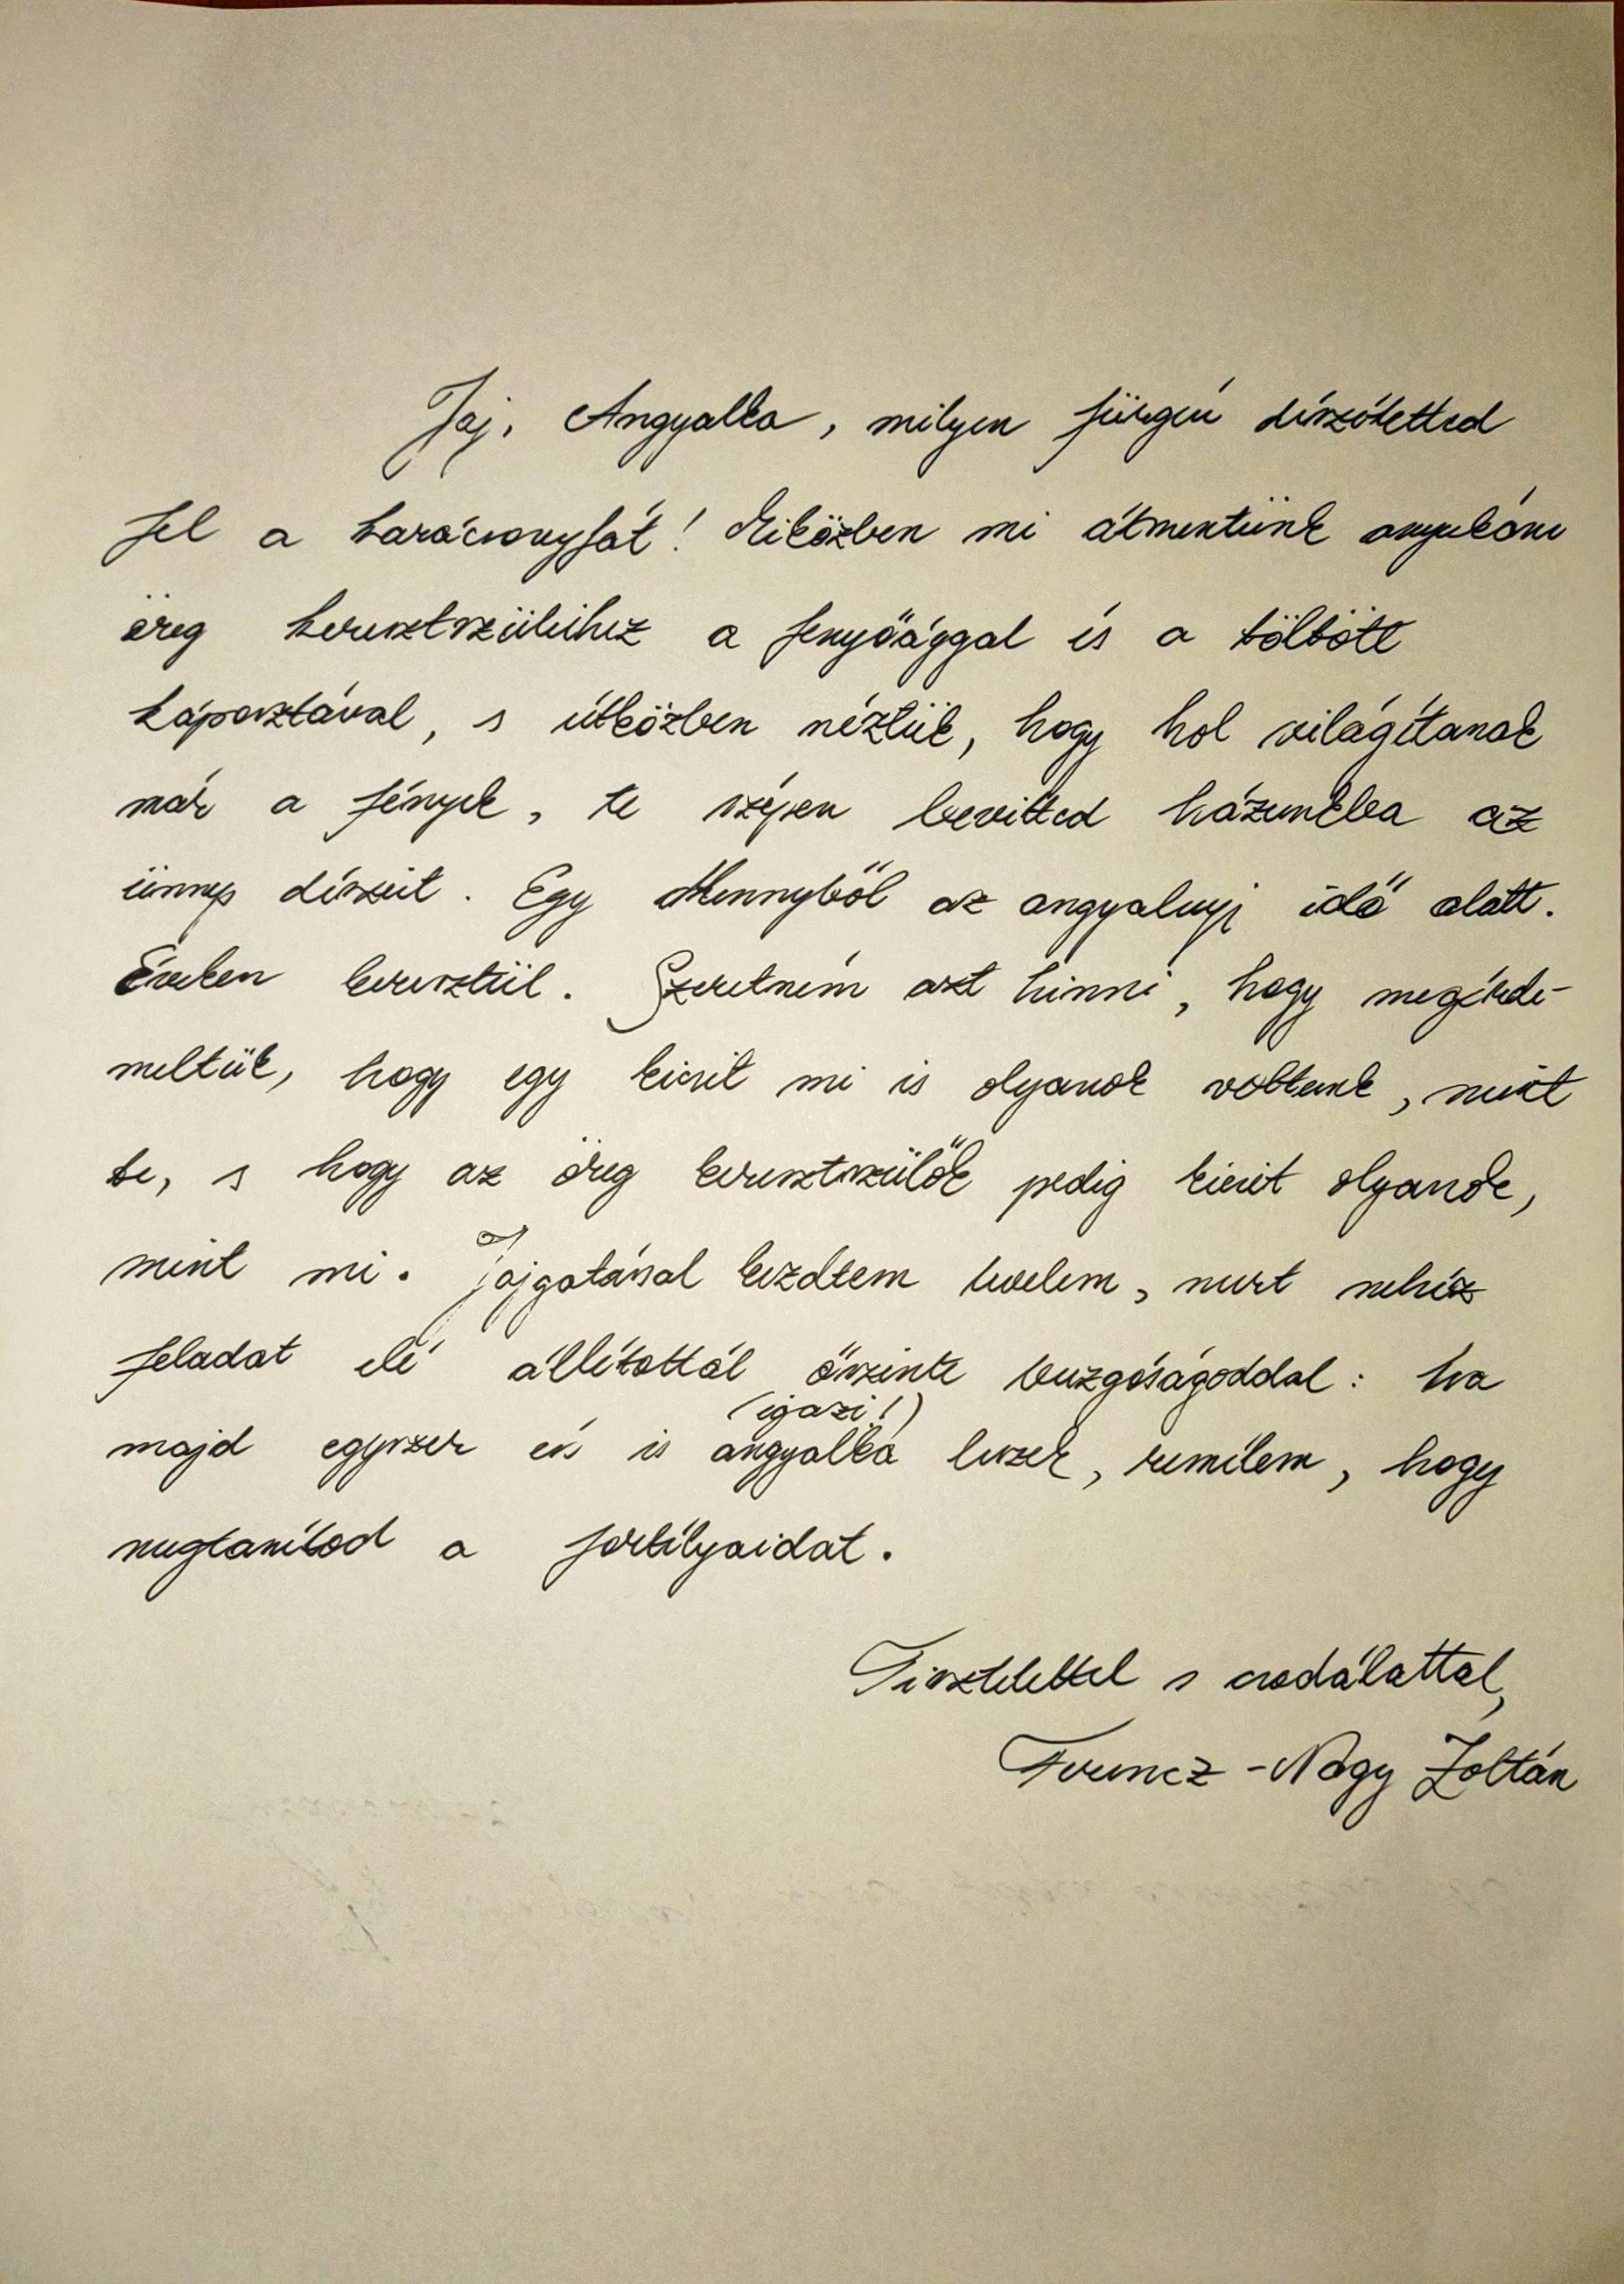 Jaj, Angyalka, milyen fürgén díszítetted
fel a karácsonyfát! Miközben mi átmentünk anyukám
öreg keresztszüleihez a fenyőággal és a töltött
káposztával, s útközben néztük, hogy hol világítanak
már a fények, te szépen bevitted házunkba az
ünnep díszeit. Egy Mennyből az angyalnyi idő alatt.
Éveken keresztül. Szeretném azt hinni, hogy megérde-
meltük, hogy egy kicsit mi is olyanok voltunk, mint
te, s hogy az öreg keresztszülők pedig kicsit olyanok,
mint mi. Jajgatással kezdtem levelem, mert nehéz
feladat elé állítottál őszinte buzgóságoddal: ha
majd egyszer én is (igazi!) angyalka leszek, remélem, hogy
megtanítod a fortélyaidat.
Tisztelettel s csodálattal,
Ferencz-Nagy Zoltán